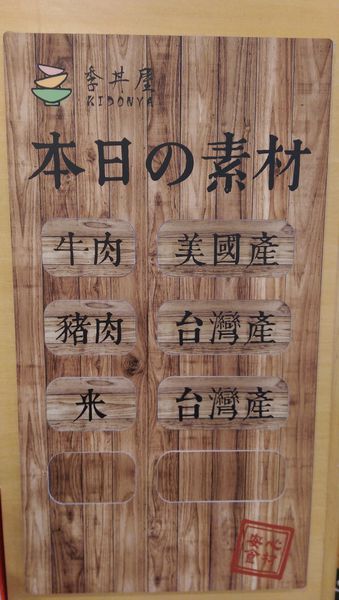 季丼屋
KIDONYA
本日の素材
牛肉 美國產
豬肉 台灣產
米 台灣產
安心
食材